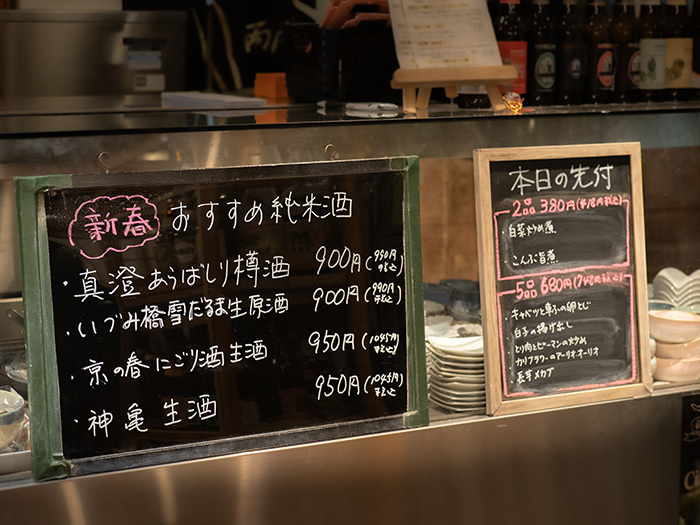 新春 おすすめ純米酒
・真澄あらばしり樽酒 900円(990円税込)
・いづみ橋雪だるま生原酒 900円(990円税込)
・京の春にごり酒生酒 950円(1045円税込)
・神亀 生酒 950円(1045円税込)
本日の先付
2品 380円(418円税込)
・白菜炒め煮
・こんぶ旨煮
5品 680円(748円税込)
・キャベツと車ふの卵とじ
・白子の揚げ出し
・とり肉とピーマンの炒め
・カリフラワーのアーリオオーリオ
・長芋メカブ